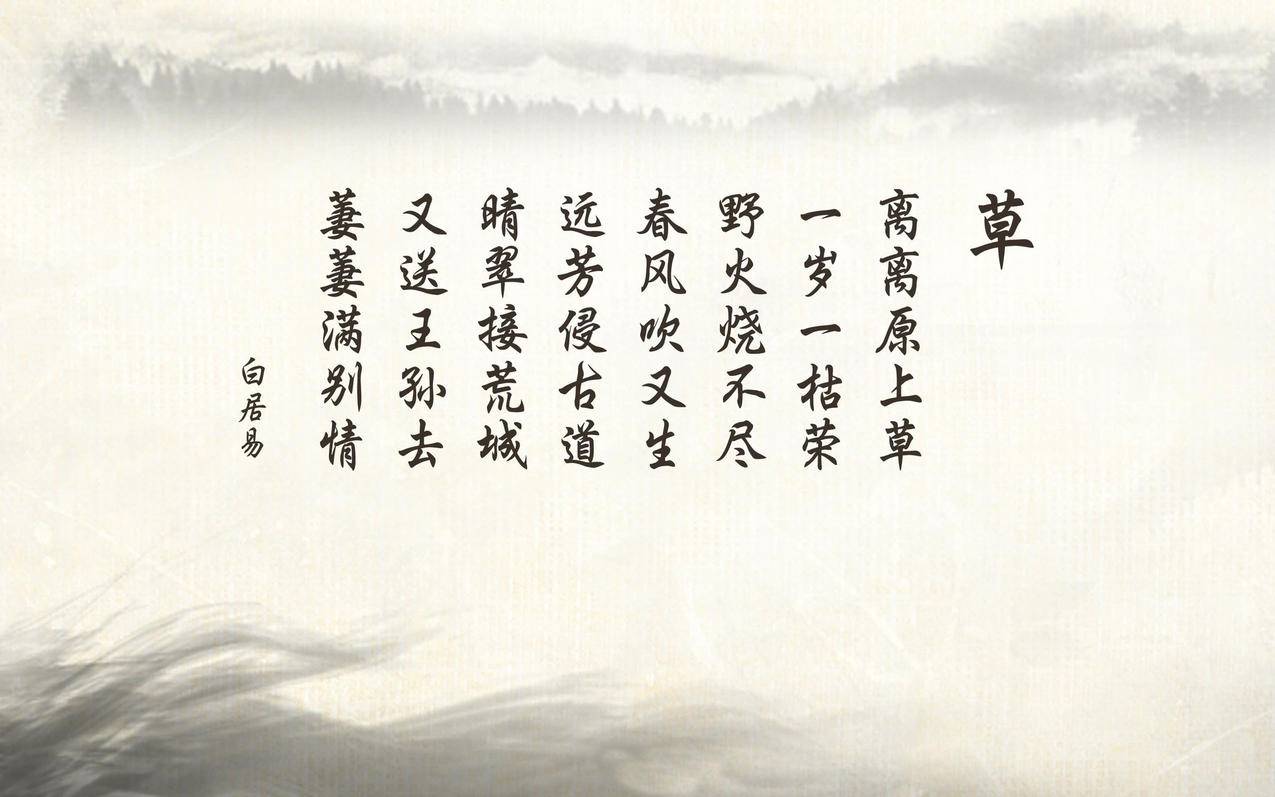 草
离离原上草
一岁一枯荣
野火烧不尽
春风吹又生
远芳侵古道
晴翠接荒城
又送王孙去
萋萋满别情
白居易